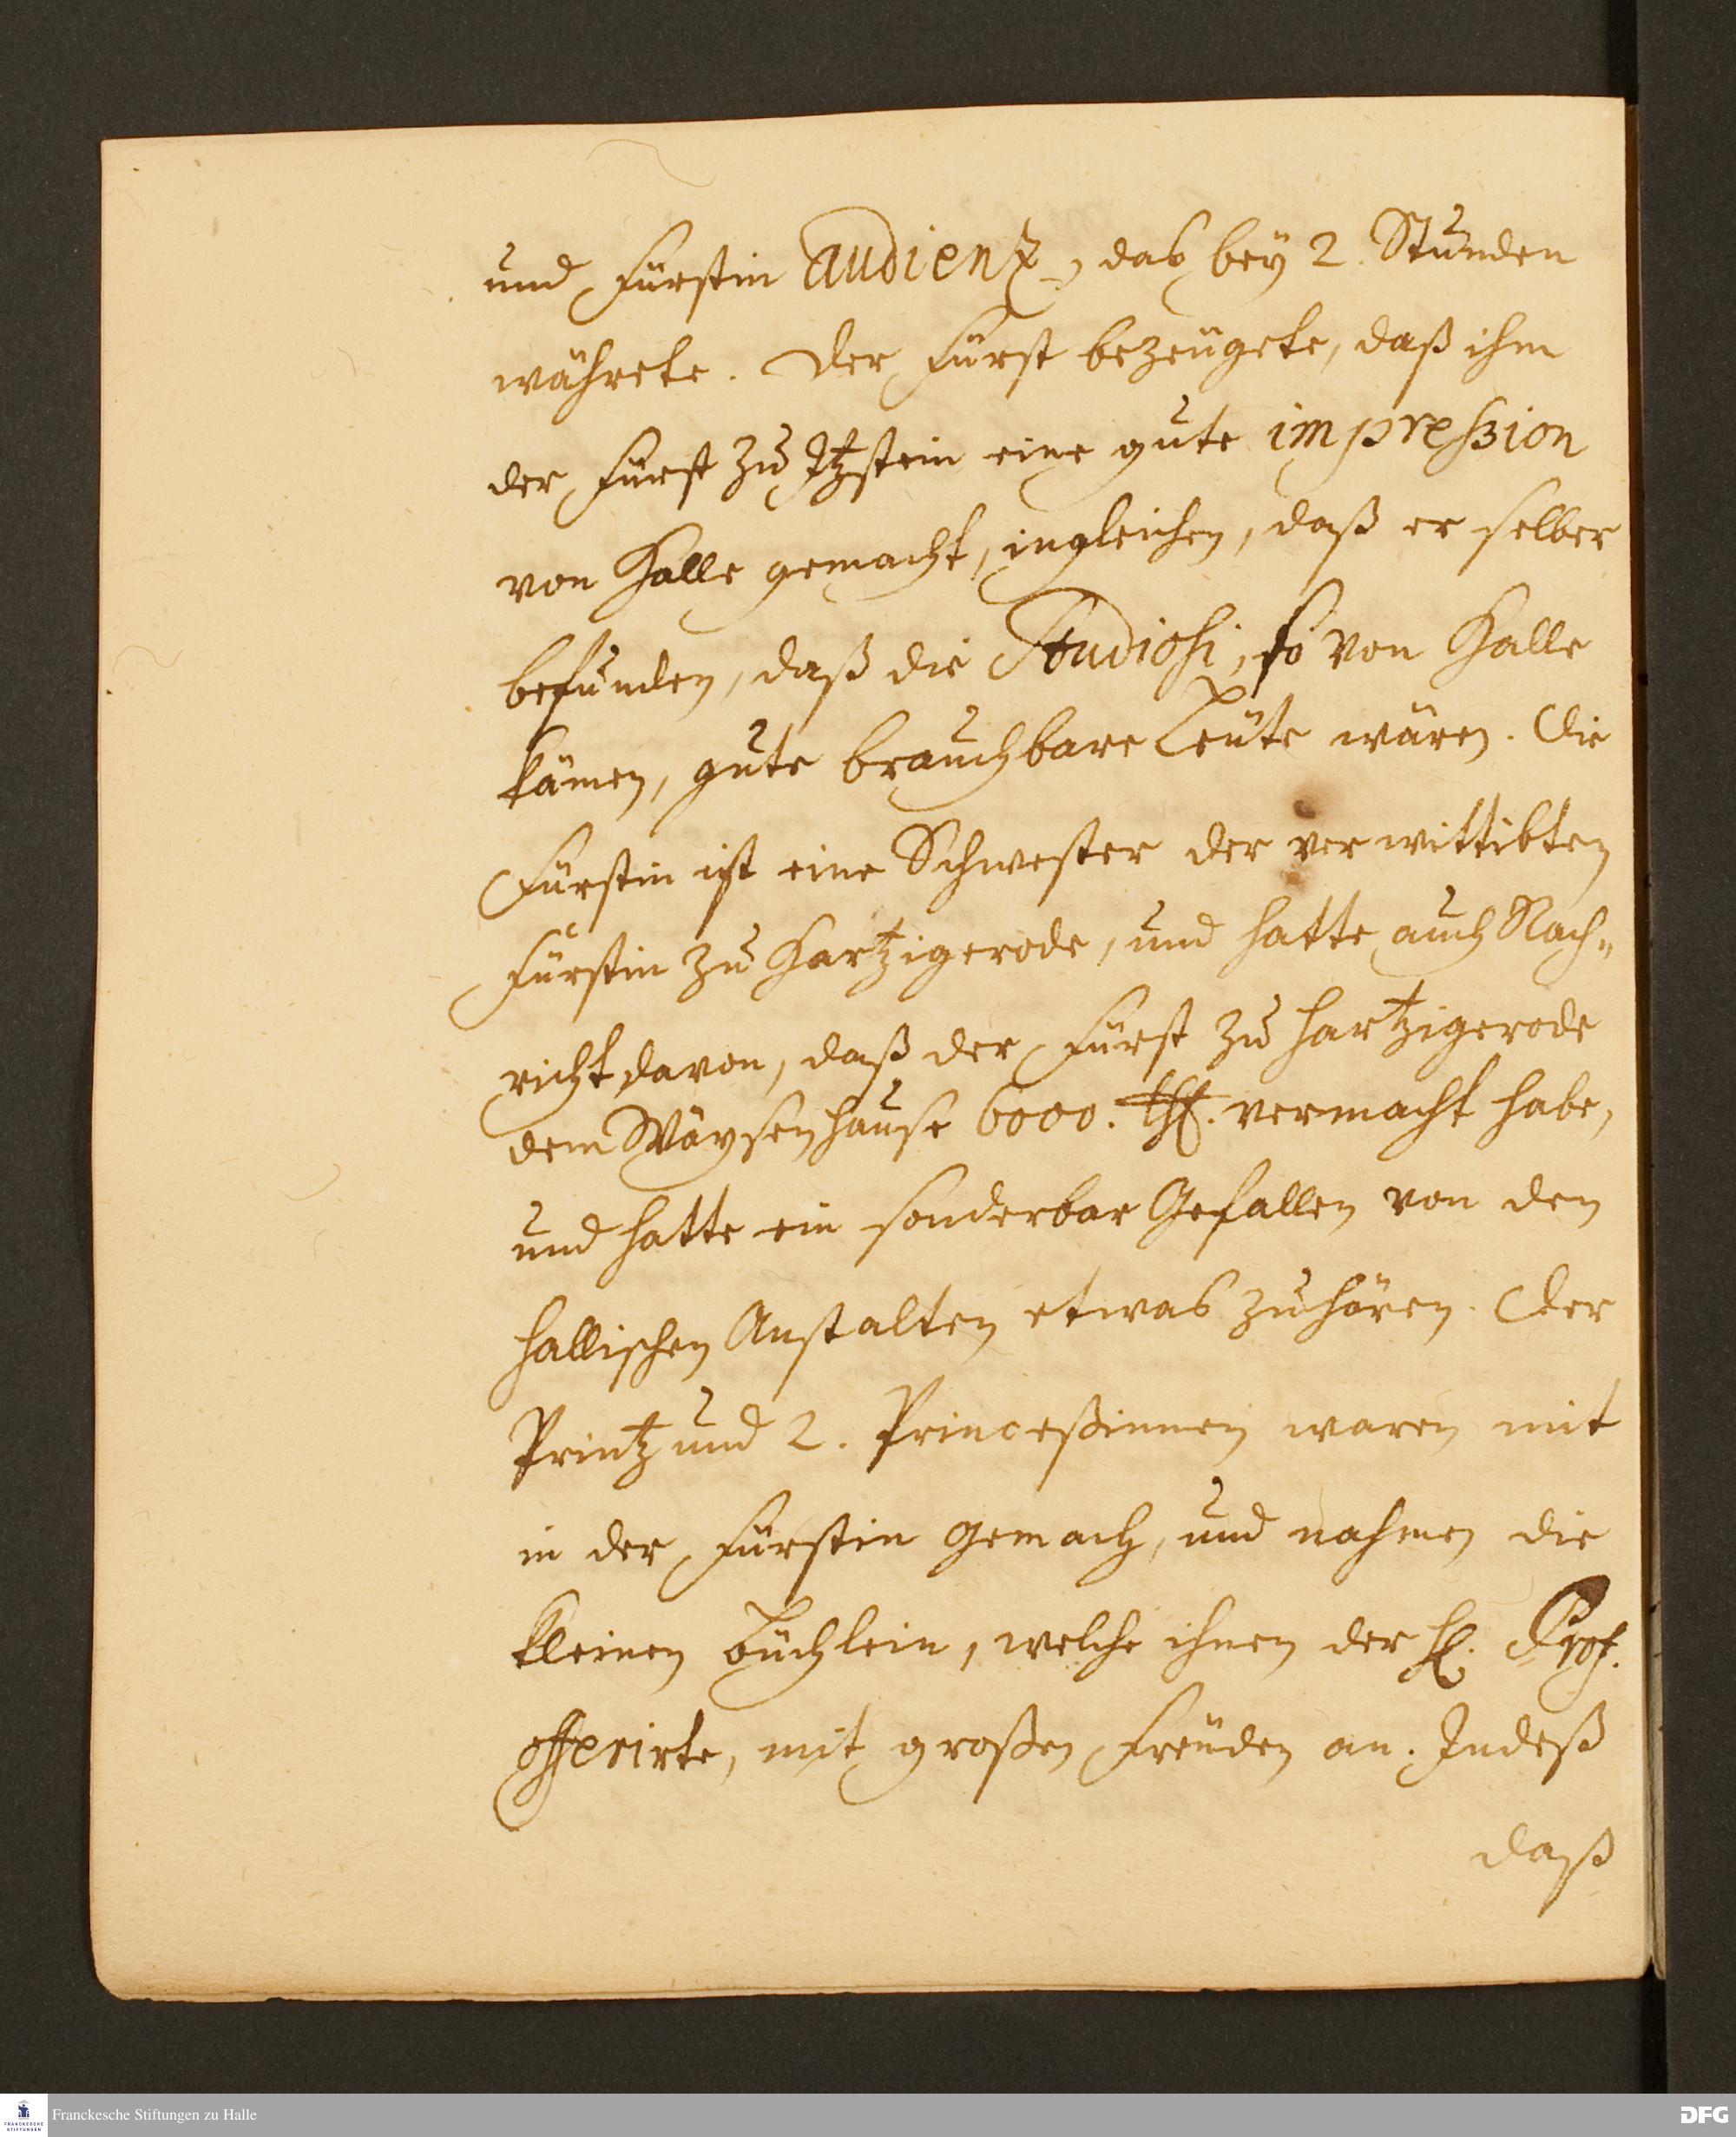 und Fürstin Audientz, das bey 2. Stunden
währete. Der Fürst bezeügete, daß ihm
der Fürst zu Itzstein eine gute impreßion
von Halle gemacht, ingleichen, daß er selber
befunden, daß die Studiosi, so von Halle
kämen, gute brauchbare Leüte wären. Die
Fürstin ist eine Schwester der verwittibten
Fürstin zu Hartzigerode, und hatte auch Nach„
richt davon, daß der Fürst zu Hartzigerode
dem Wäysenhause 6000. thl. vermacht habe,
und hatte ein sonderbar Gefallen von den
Hallischen Anstalten etwas zu hören. Der
Printz und 2. Princeßinnen waren mit
in der Fürstin Gemach, und nahmen die
kleinen Büchlein, welche ihnen der H. Prof.
offerirte, mit großen Freüden an. Indeß
daß
Franckesche Stiftungen zu Halle
FRANCKESCHE
STIFTUNGEN
DFG